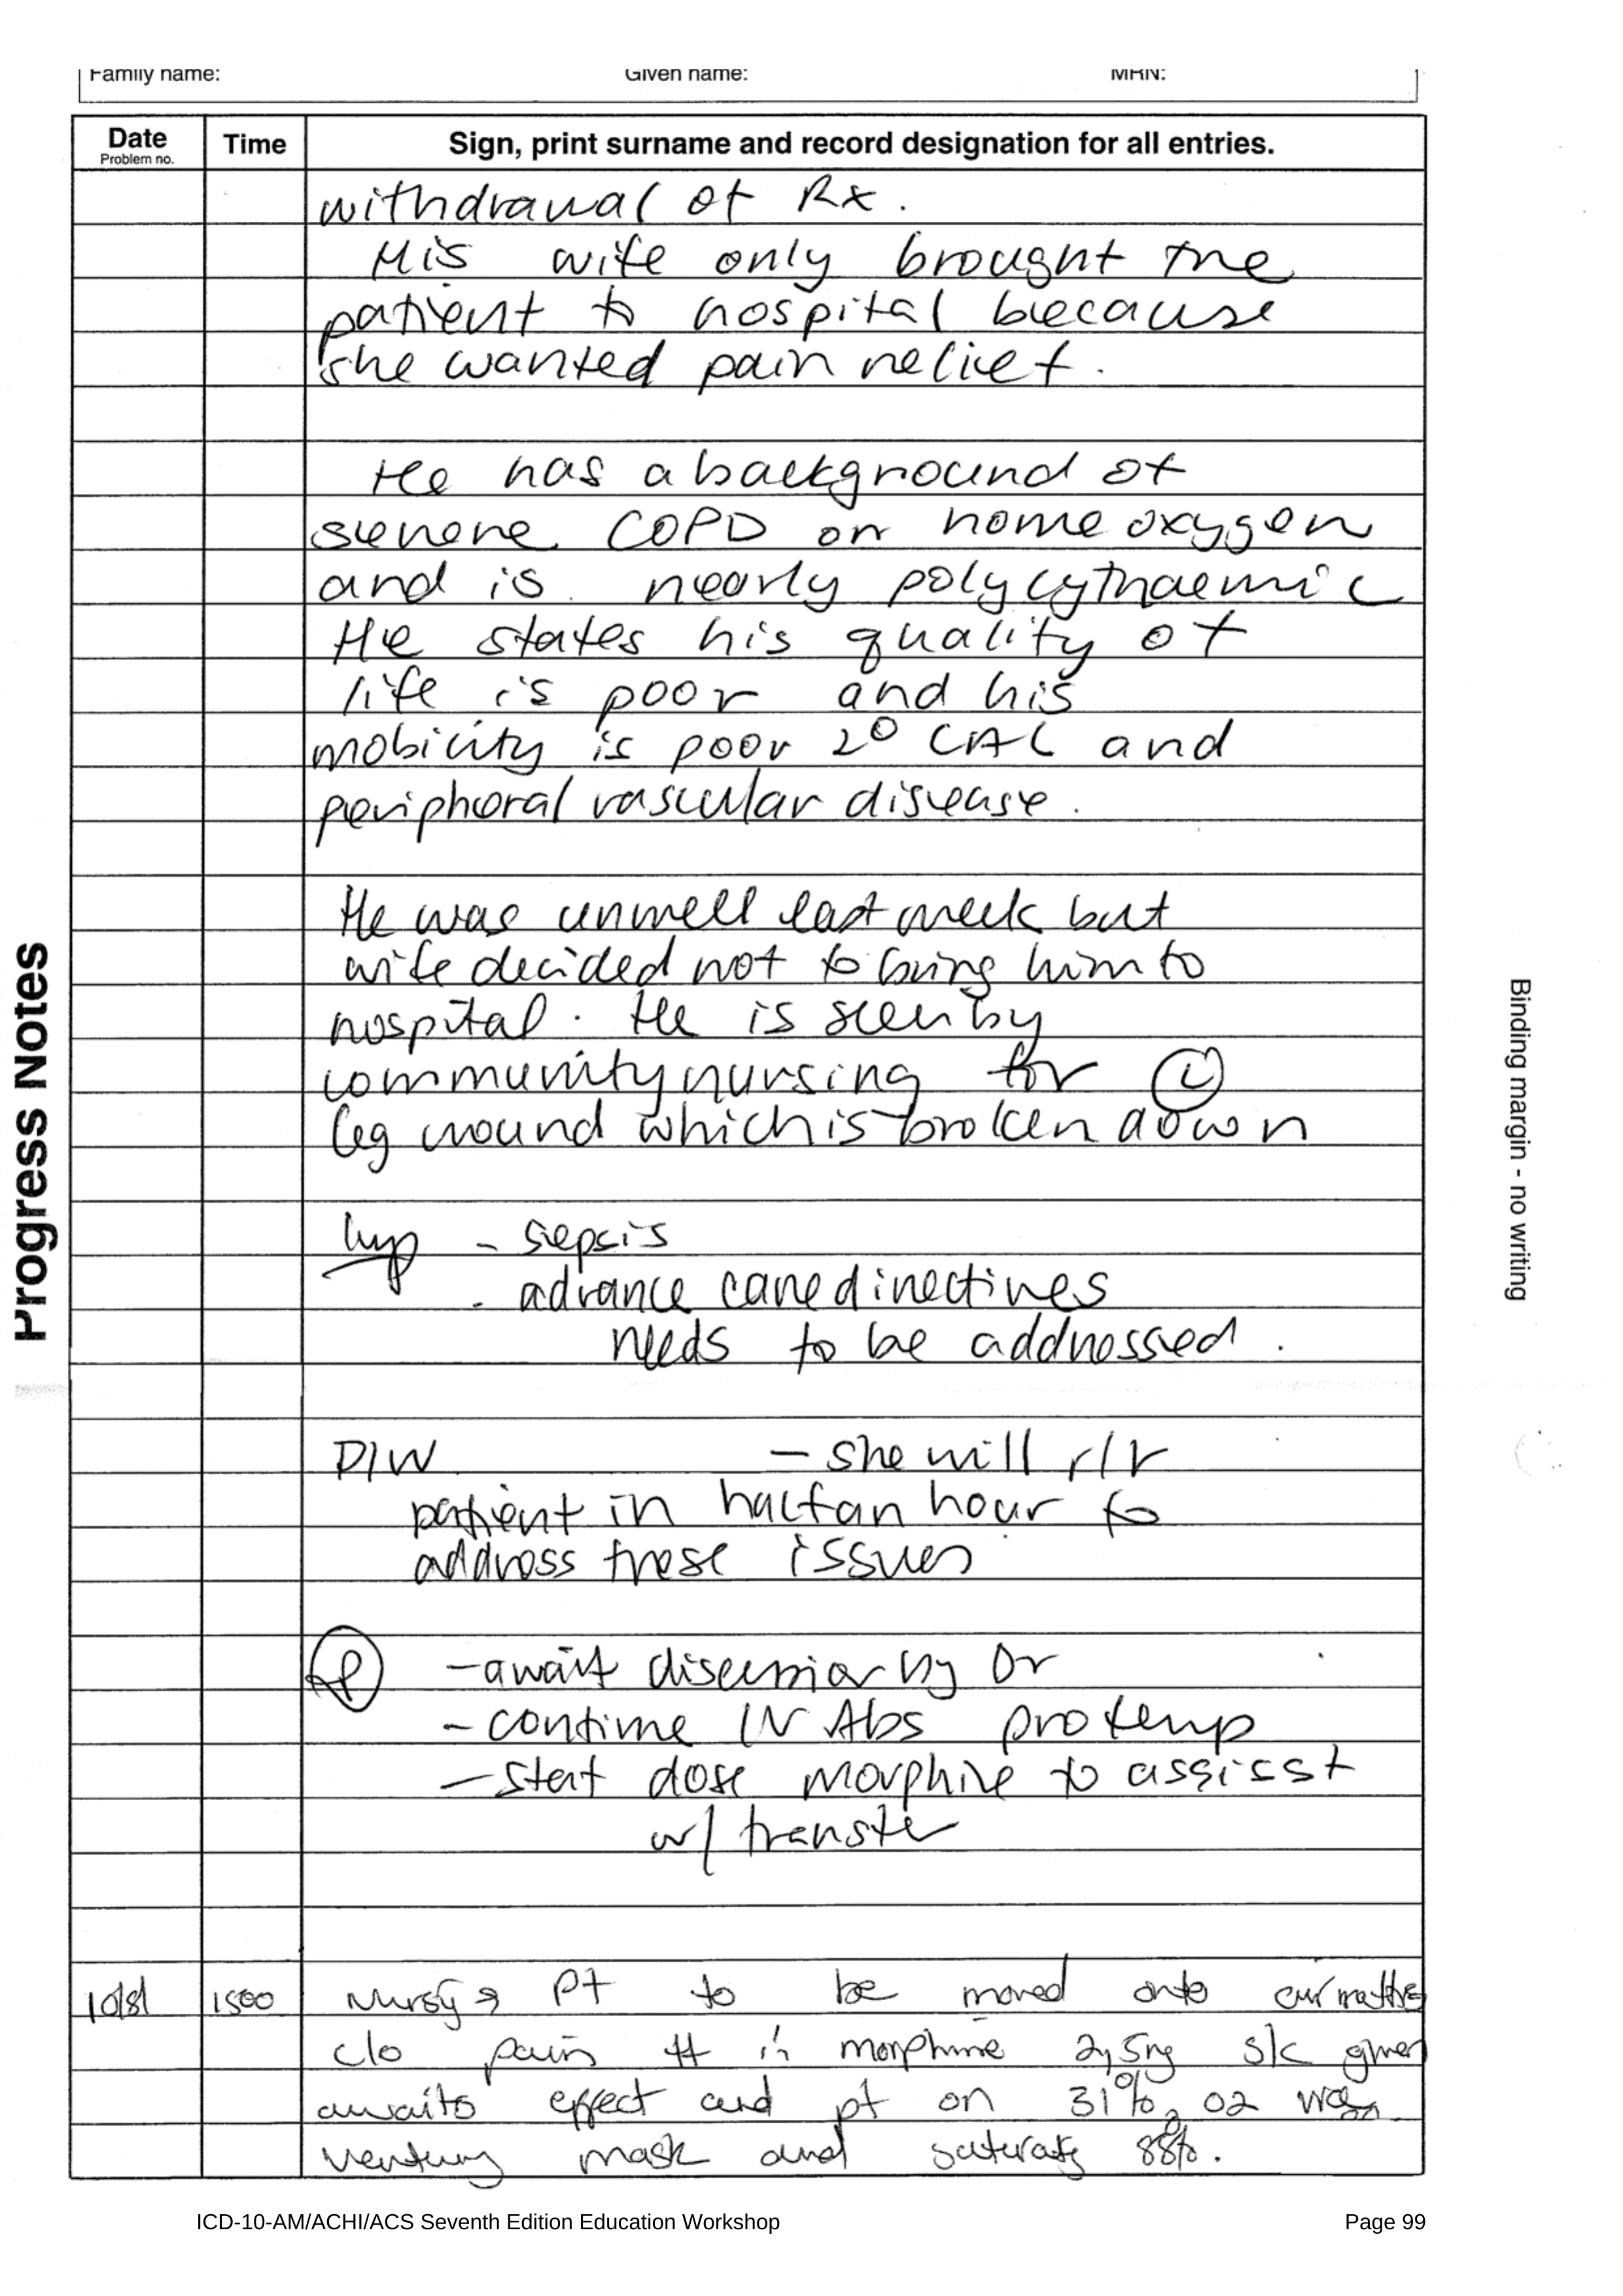 Family name: Given name: MRN:
Date Time Sign, print surname and record designation for all entries.
Problem no.
withdrawal of Rx.
His wife only brought the
patient to hospital because
she wanted pain relief.
He has a background of
severe COPD on home oxygen
and is nearly polycythaemic
He states his quality of
life is poor and his
mobility is poor 2° CAL and
peripheral vascular disease.
He was unwell last week but
wife decided not to bring him to
hospital. He is seen by
community nursing for Ⓛ
leg wound which is broken down
Imp - sepsis
- advance care directives
needs to be addressed.
D/W - she will r/v
patient in half an hour to
address these issues
Ⓟ - await discussion by Dr
- continue IV Abs protemp
- stat dose morphine to assisst
w/ transfer
10/8/ 1500 Nursing Pt to be moved onto air mattress
c/o pain morphine 2.5mg s/c given
awaits effect and pt on 31% O2 via
ventury mask and saturating 88%.
Progress Notes
Binding margin - no writing
ICD-10-AM/ACHI/ACS Seventh Edition Education Workshop Page 99